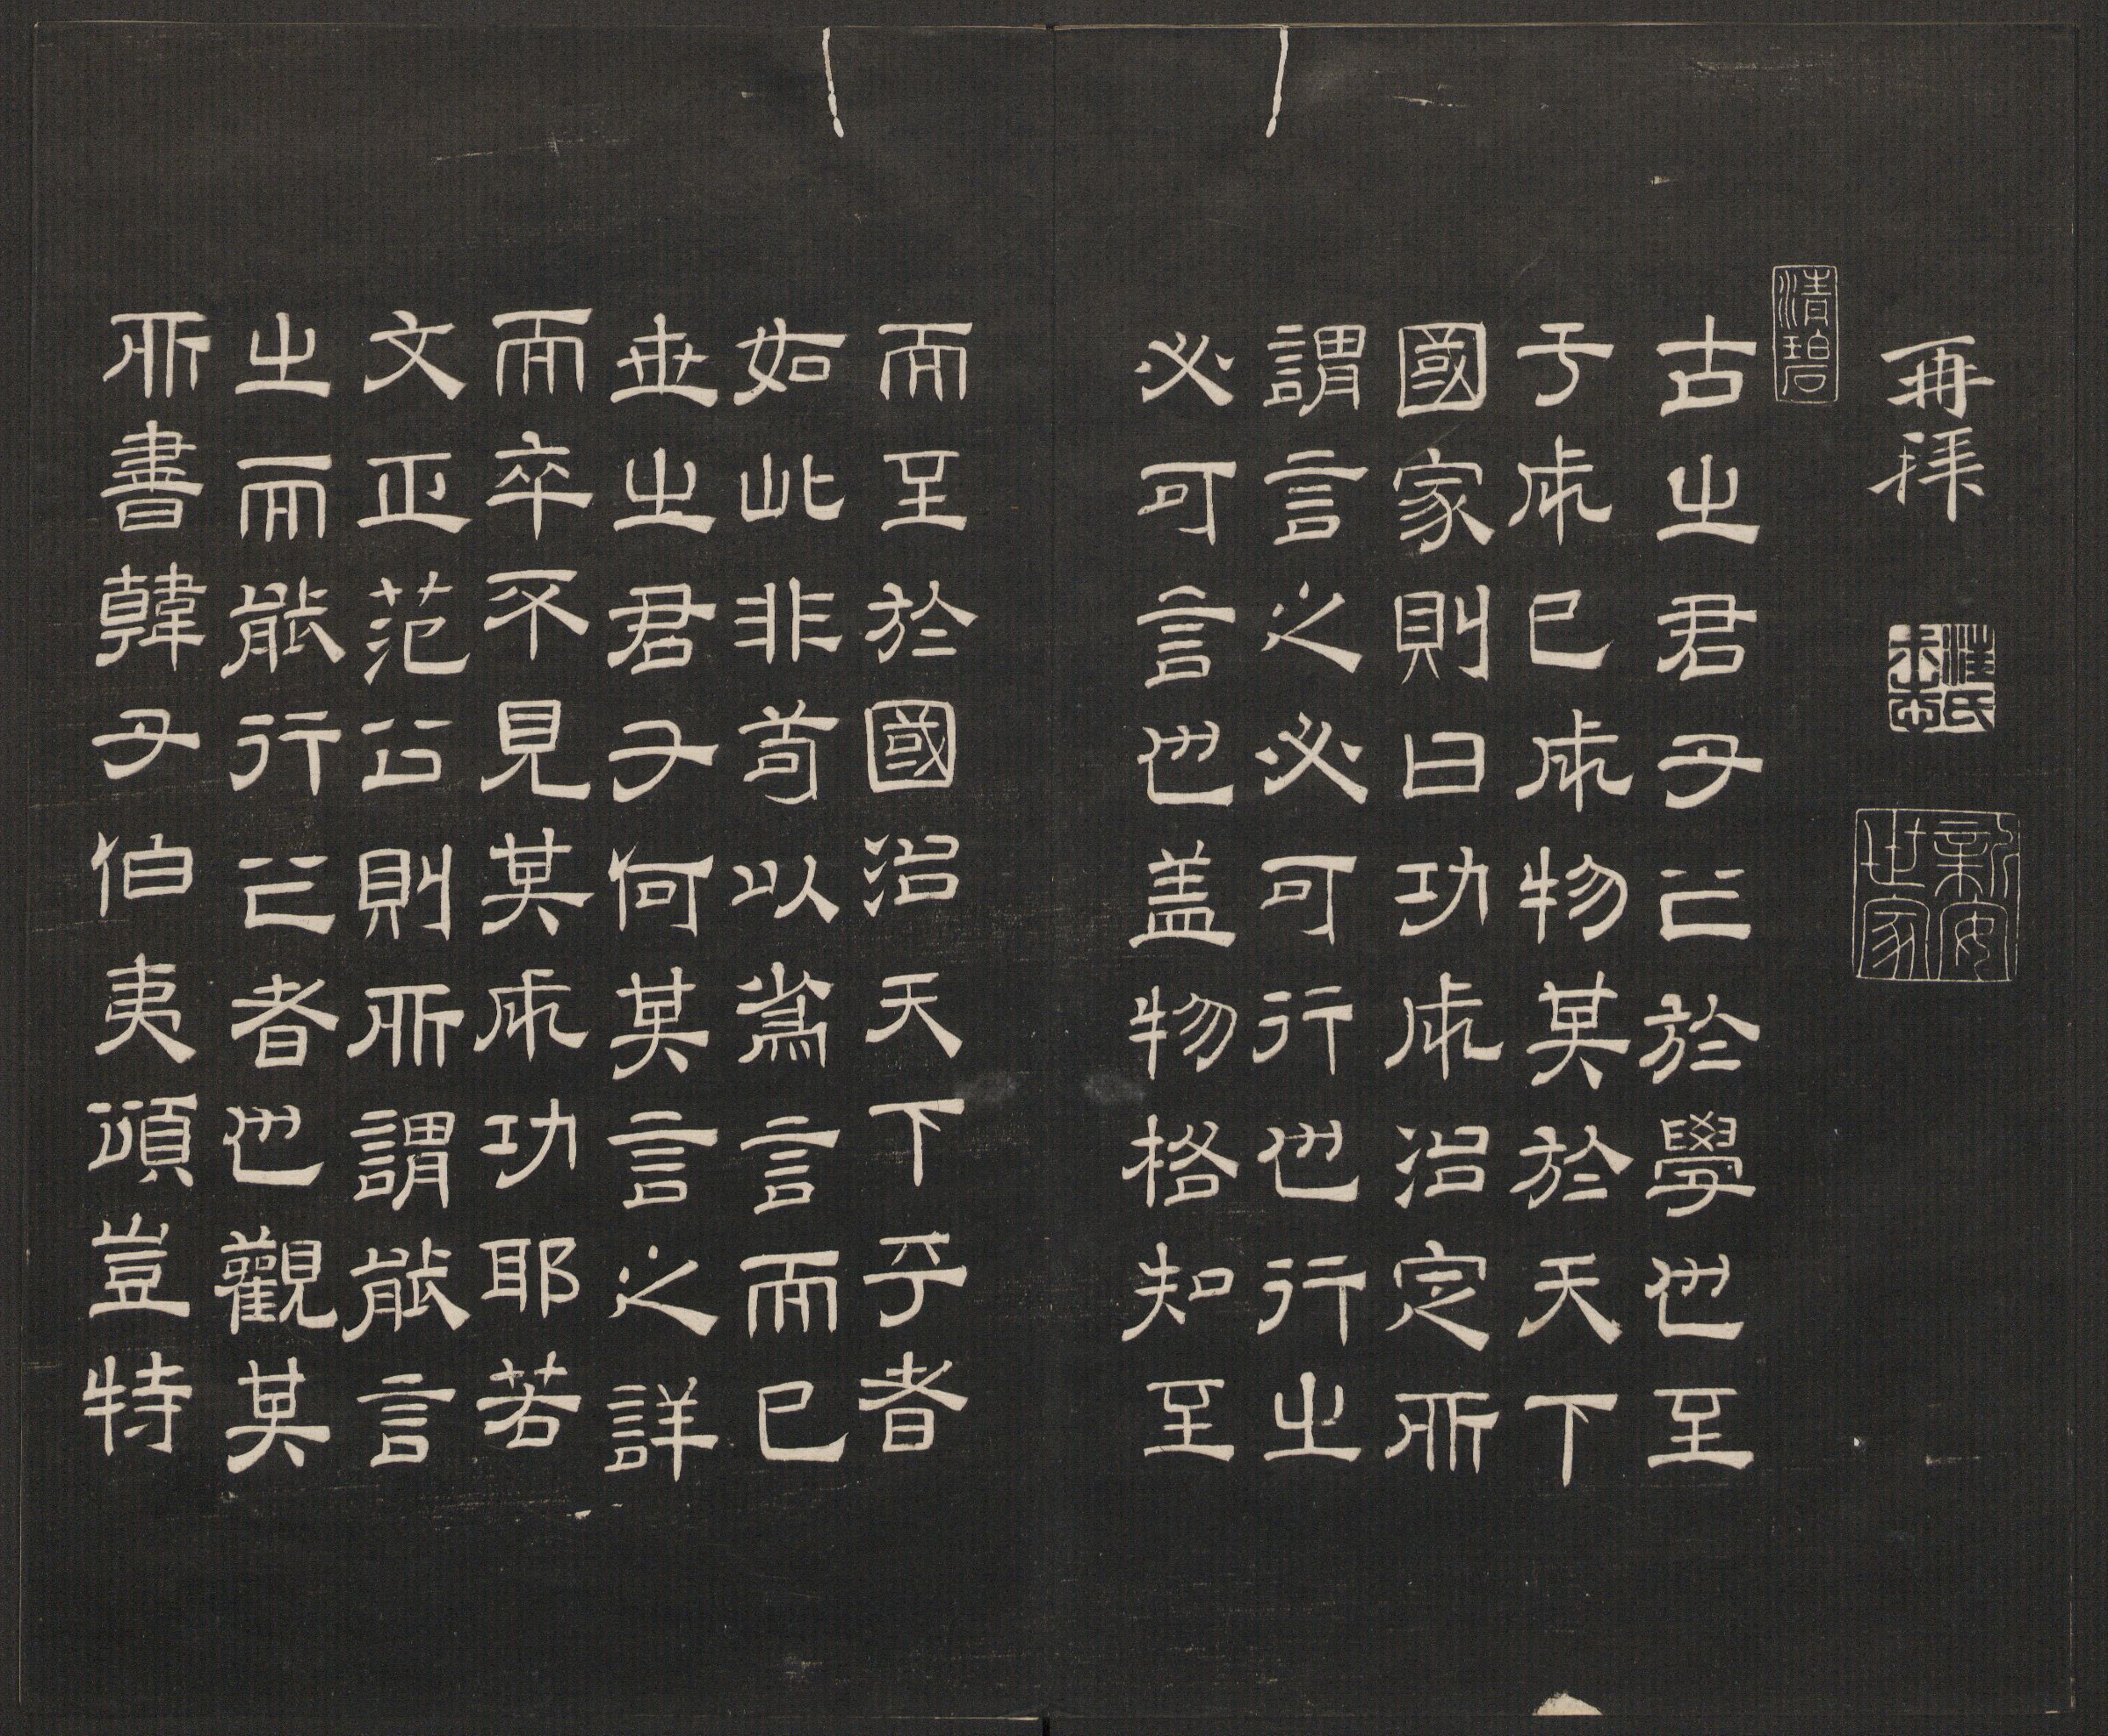 再拜
汪氏
新安世家
清碧
古之君子之於學也至
于成己成物其於天下
國家則曰功成治定所
謂言之必可行也行之
必可言也盖物格知至
而至於國治天下平者
如此非苟以為言而已
世之君子何其言之詳
而卒不見其成功耶若
文正范公則所謂能言
之而能行之者也觀其
所書韓子伯夷頌豈特